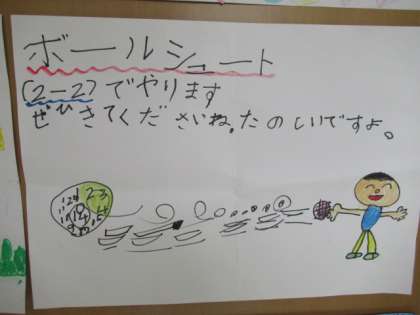 ボールシュート
(2-2)でやります
ぜひきてくださいね。たのしいですよ。